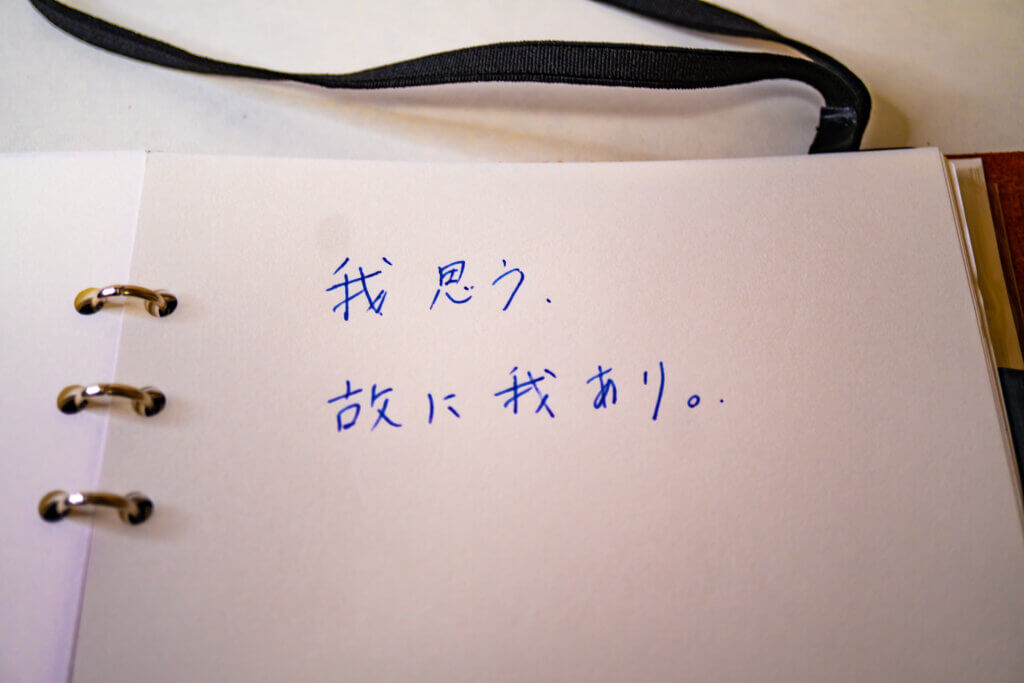 我思う、
故に我あり。